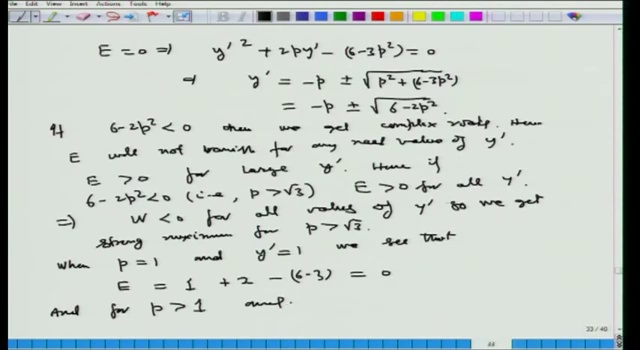 Edit View Insert Actions Tools Help
E = 0 ⇒ y'² + 2py' - (6-3p²) = 0
⇒ y' = -p ± √(p² + (6-3p²))
= -p ± √(6-2p²)
If 6-2p² < 0 then we get complex roots. Hence
E will not vanish for any real value of y'.
E > 0 for large y'. Hence if
6-2p² < 0 (i.e., p > √3) E > 0 for all y'.
⇒ W < 0 for all values of y' so we get
strong maximum for p > √3.
When p = 1 and y' = 1 we see that
E = 1 + 2 - (6-3) = 0
And for p > 1 and
33 / 40
33